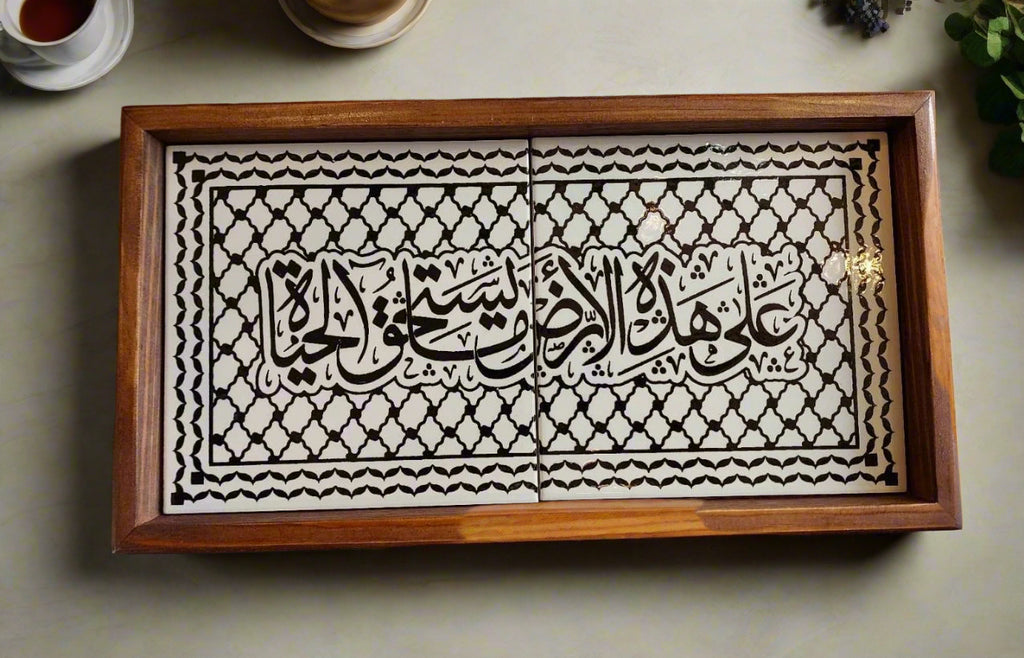 عَلَى هَذِهِ الأَرْضِ مَا يَسْتَحِقُّ الحَيَاةَ